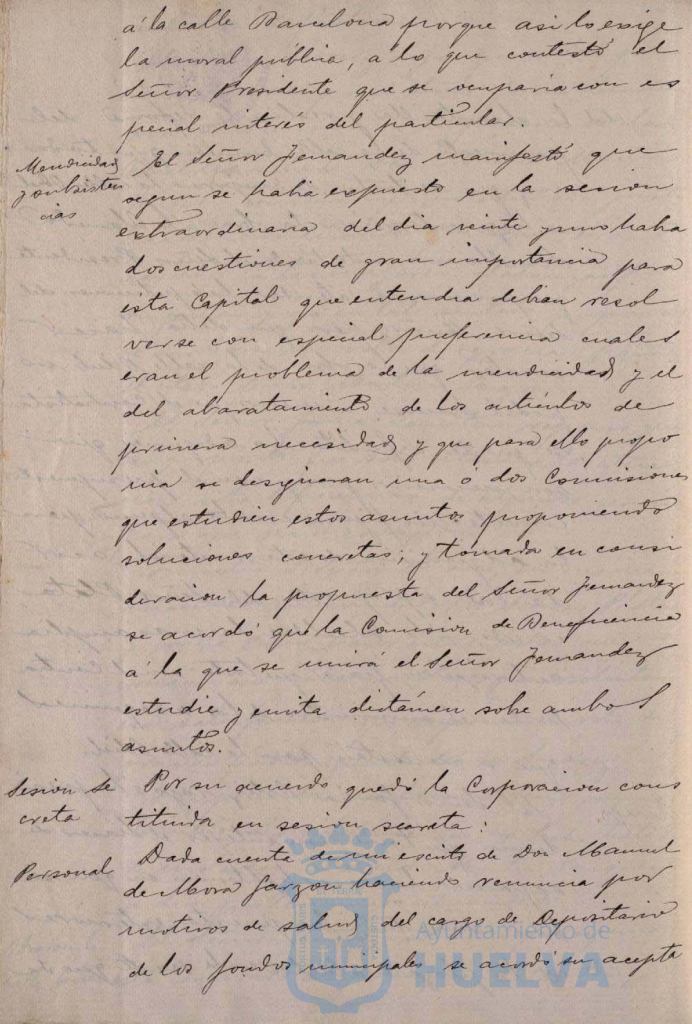 á la calle Barcelona porque asi lo exige
la moral pública, a lo que contestó el
Señor Presidente que se ocuparia con es
pecial interés del particular.
Mendicidad
y subsisten
cias
El Señor Fernandez manifestó que
segun se habia expuesto en la sesion
extraordinaria del dia veinte y uno habia
dos cuestiones de gran importancia para
esta Capital que entendia debian resol
verse con especial preferencia cuales
eran el problema de la mendicidad y el
del abaratamiento de los articulos de
primera necesidad y que para ello propo
nia se designaran una ó dos Comisiones
que estudien estos asuntos proponiendo
soluciones concretas; y tomada en consi
deracion la propuesta del Señor Fernandez
se acordó que la Comision de Beneficencia
á la que se unirá el Señor Fernandez
estudie y emita dictámen sobre ambos
asuntos.
Sesion Se
creta
Por su acuerdo quedó la Corporacion cons
tituida en sesion secreta:
Personal
Dada cuenta de un escrito de Don Manuel
de Mora Garzon haciendo renuncia por
motivos de salud del cargo de Depositario
de los fondos municipales se acordó su acepta
Ayuntamiento de
HUELVA